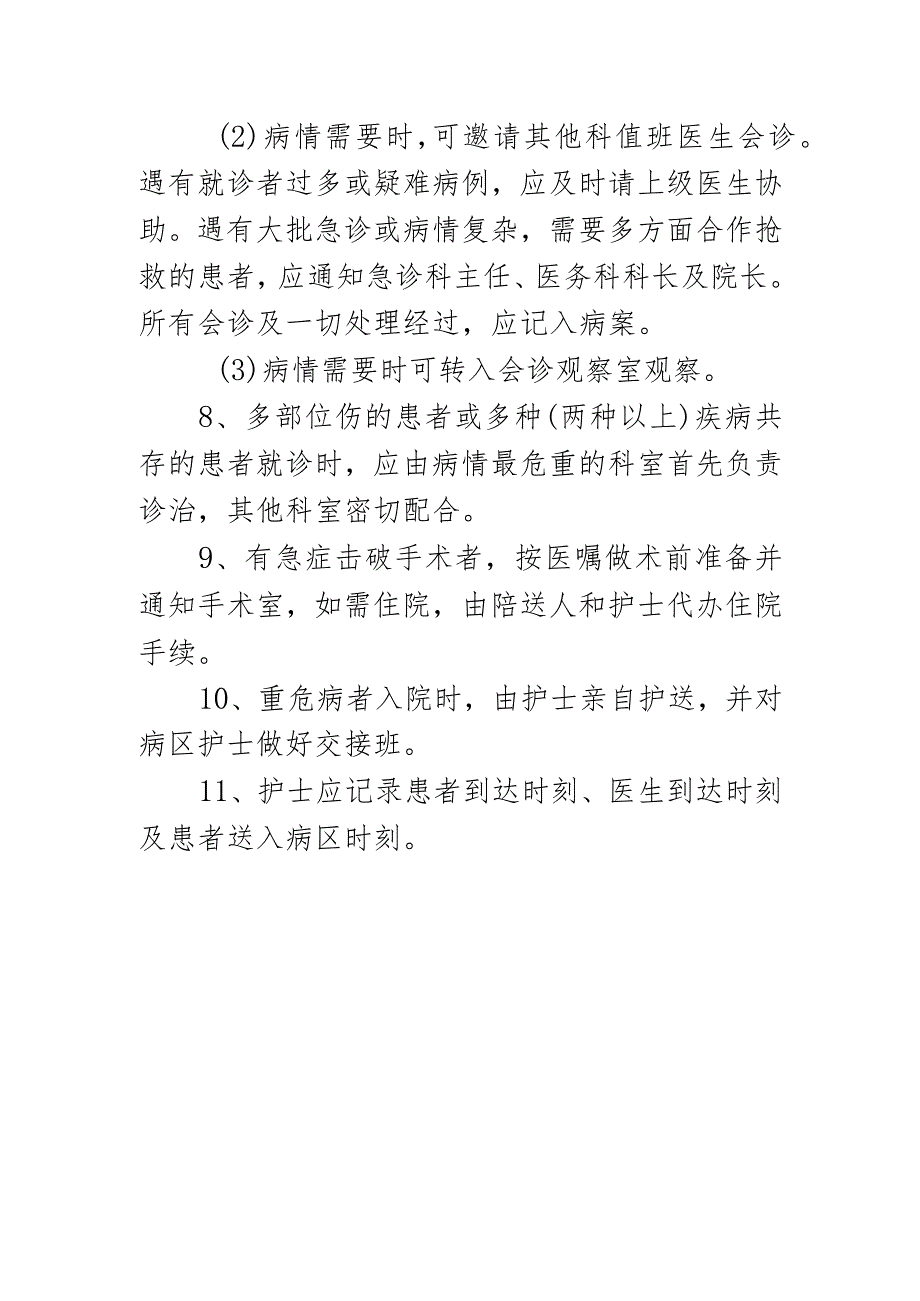 (2)病情需要时,可邀请其他科值班医生会诊。
遇有就诊者过多或疑难病例，应及时请上级医生协
助。遇有大批急诊或病情复杂，需要多方面合作抢
救的患者,应通知急诊科主任、医务科科长及院长。
所有会诊及一切处理经过，应记入病案。
(3)病情需要时可转入会诊观察室观察。
8、多部位伤的患者或多种(两种以上)疾病共
存的患者就诊时，应由病情最危重的科室首先负责
诊治，其他科室密切配合。
9、有急症击破手术者，按医嘱做术前准备并
通知手术室，如需住院，由陪送人和护士代办住院
手续。
10、重危病者入院时，由护士亲自护送，并对
病区护士做好交接班。
11、护士应记录患者到达时刻、医生到达时刻
及患者送入病区时刻。